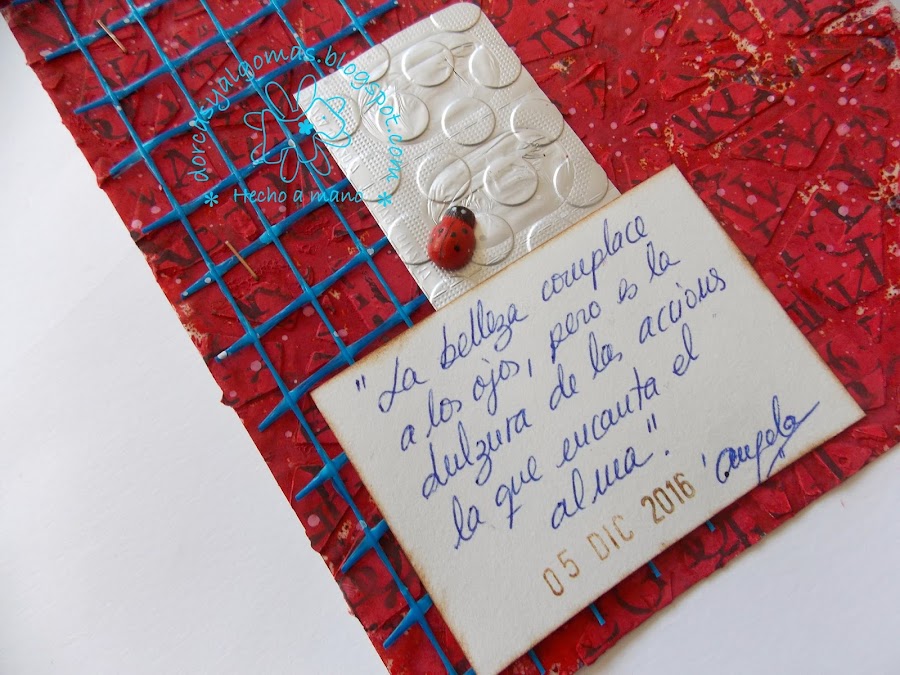 dorcasyalgomas.blogspot.com
* Hecho a mano *
"La belleza complace
a los ojos, pero es la
dulzura de las acciones
la que encanta el
alma".
angela
05 DIC 2016